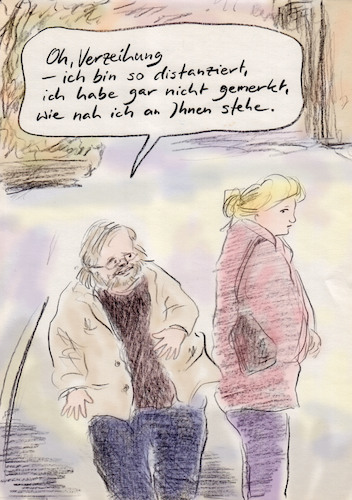 Oh, Verzeihung
– ich bin so distanziert,
ich habe gar nicht gemerkt,
wie nah ich an Ihnen stehe.